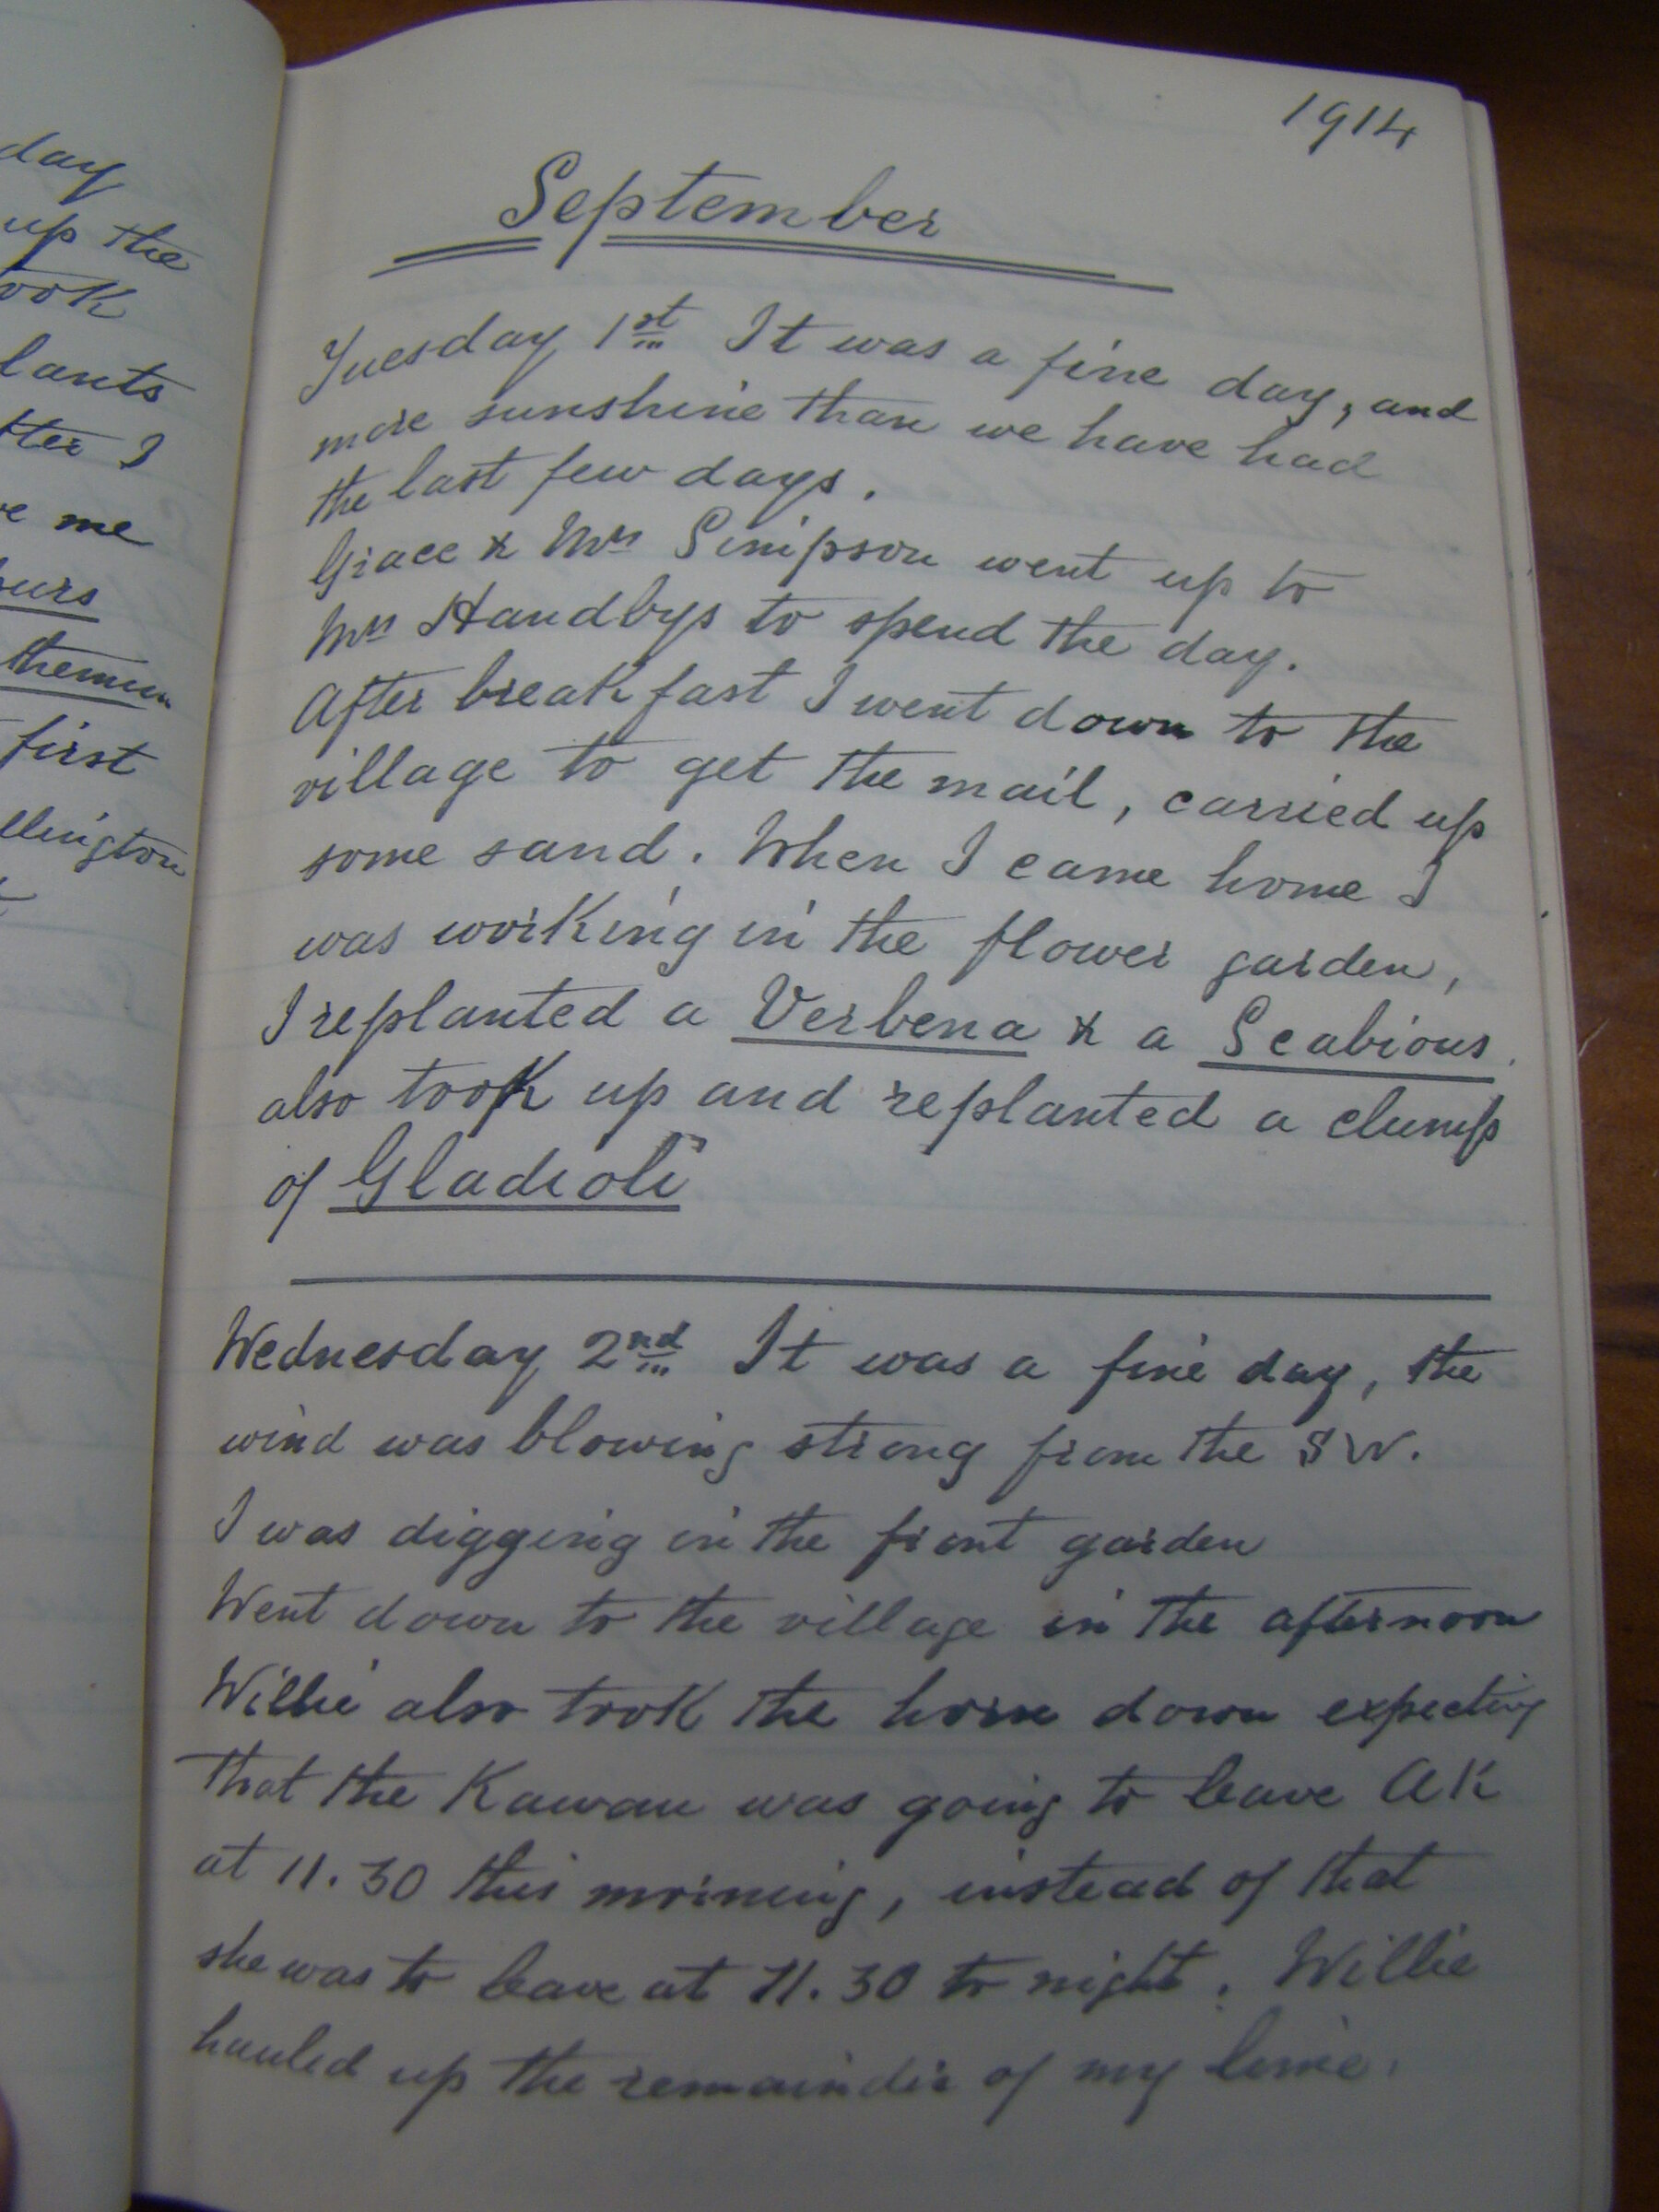 day
up the
ook
lants
tter I
e me
ours
themum
first
llington
1914
September
Tuesday 1st It was a fine day, and
more sunshine than we have had
the last few days.
Grace & Mrs Simpson went up to
Mrs Handbys to spend the day.
After breakfast I went down to the
village to get the mail, carried up
some sand. When I came home I
was working in the flower garden,
I replanted a Verbena & a Scabious.
also took up and replanted a clump
of Gladioli
Wednesday 2nd It was a fine day, the
wind was blowing strong from the SW.
I was digging in the front garden
Went down to the village in the afternoon
Willie also took the horse down expecting
that the Kawau was going to leave AK
at 11.30 this morning, instead of that
she was to leave at 11.30 to night. Willie
hauled up the remainder of my lime.